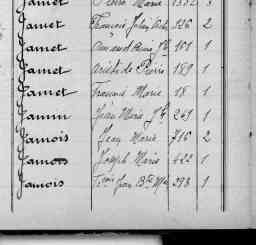 Jamet Pierre Marie
Jamet François Julien 326 2
Jamet Armand 161 1
Jamet Aristide Pierre 189 1
Jamet Francis Marie 18 1
Jamin Jean Marie 249 1
Jamois Jean Marie 716 2
Jamois Joseph Marie 422 1
Jamois Jean Bte 298 1